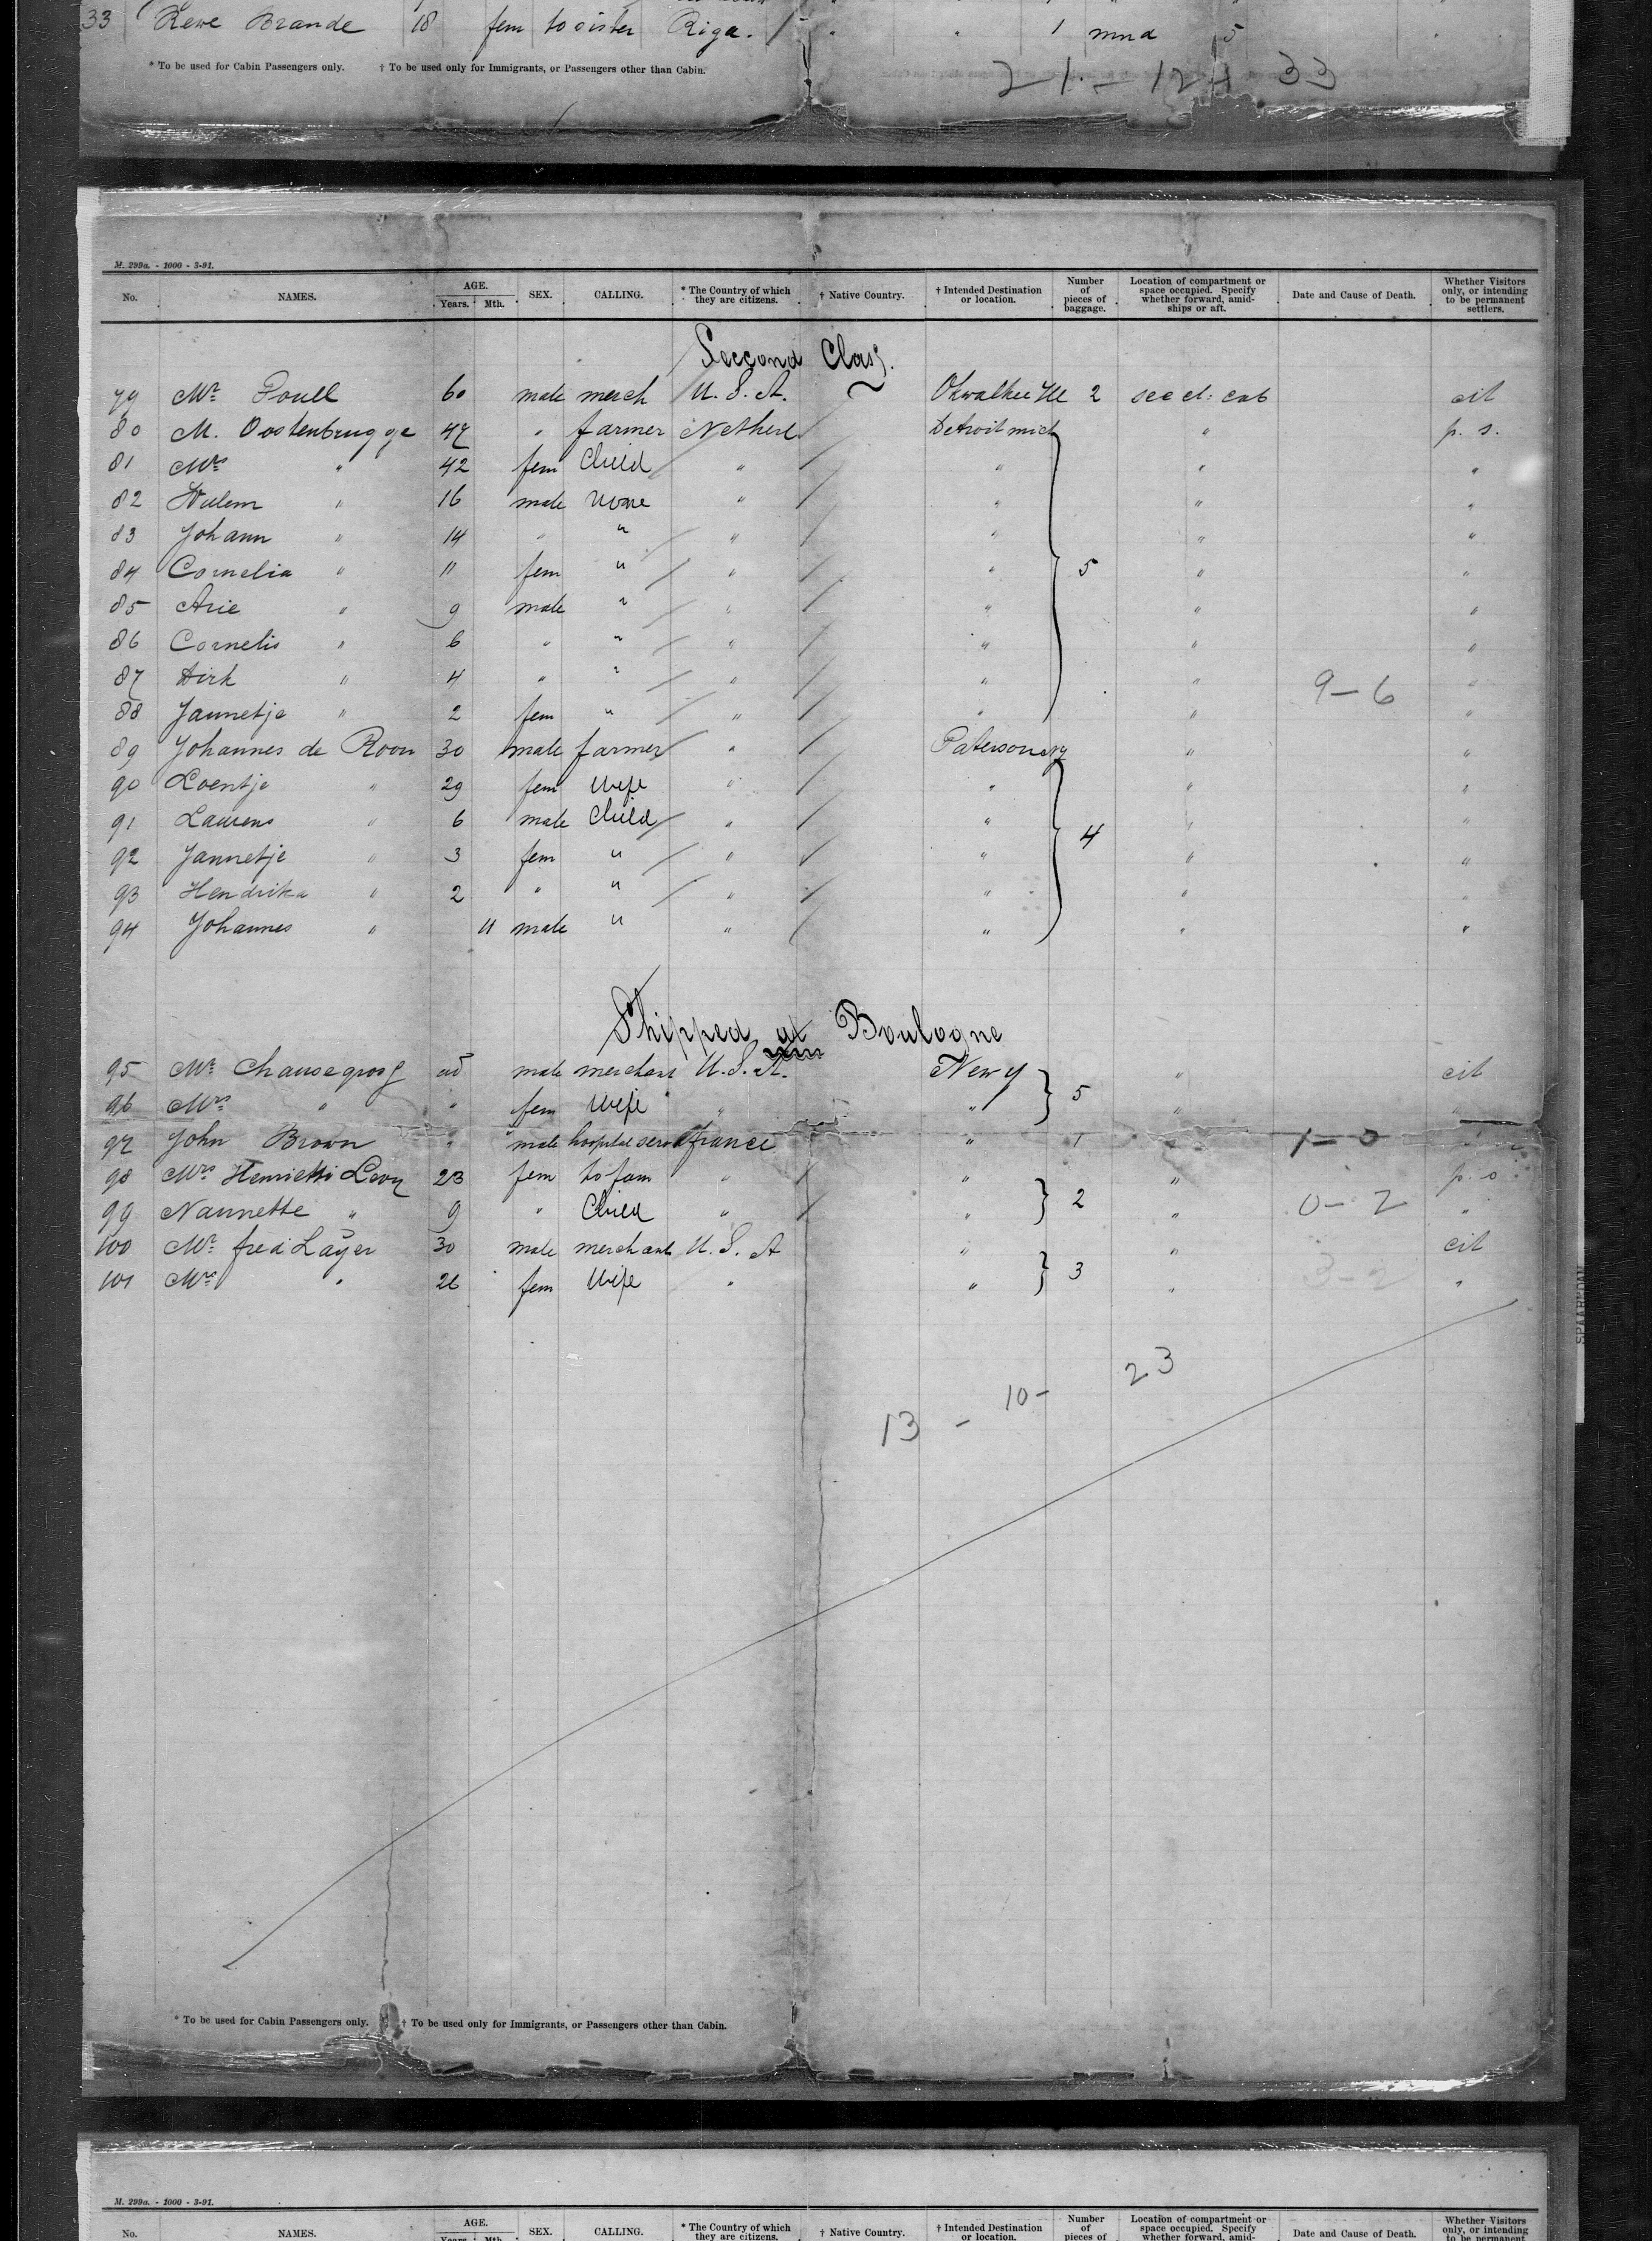 33 Rewe Brande 18 fem to sister Riga. " " 1 mnd 5 "
* To be used for Cabin Passengers only. † To be used only for Immigrants, or Passengers other than Cabin.
21 - 12 33
M. 299a. - 1000 - 3-91.
No. NAMES. AGE. Years. Mth. SEX. CALLING. * The Country of which they are citizens. † Native Country. † Intended Destination or location. Number of pieces of baggage. Location of compartment or space occupied. Specify whether forward, amidships or aft. Date and Cause of Death. Whether Visitors only, or intending to be permanent settlers.
Seccond Class.
79 Mr. Poull 60 male merch U.S.A. 2 sec cl: cab cit
80 M. Oostenbrugge 47 " farmer Netherl. Detroit mich " p. s.
81 Mrs " 42 fem Child " " " "
82 Willem " 16 male none " " " "
83 Johann " 14 " " " " " "
84 Cornelia " 11 fem " " " 5 " "
85 Arie " 9 male " " " " "
86 Cornelis " 6 " " " " " "
87 Dirk " 4 " " " " " 9-6 "
88 Jannetje " 2 fem " " " " "
89 Johannes de Roon 30 male farmer " Paterson ny " "
90 Loentje " 29 fem Wife " " " "
91 Laurens " 6 male Child " " 4 " "
92 Jannetje " 3 fem " " " " "
93 Hendrika " 2 " " " " " "
94 Johannes " 11 male " " " " "
Shipped at Boulogne
95 Mr. Chausegrosg ad male merchant U.S.A. New Y 5 " cit
96 Mrs " " fem Wife " " " "
97 John Brown " male hospital serv france " 1 " 1-0 "
98 Mrs Henrietti Levy 23 fem to fam " " 2 " p. s.
99 Nannette " 9 " Child " " " 0-2 "
100 Mr. fred Layer 30 male merchant U.S.A " 3 " 3-2 cit
101 Mrs " 26 fem Wife " " " "
13 - 10 - 23
* To be used for Cabin Passengers only. † To be used only for Immigrants, or Passengers other than Cabin.
SPAARNDAM
M. 299a. - 1000 - 3-91.
No. NAMES. AGE. Years. Mth. SEX. CALLING. * The Country of which they are citizens. † Native Country. † Intended Destination or location. Number of pieces of Location of compartment or space occupied. Specify whether forward, amid- Date and Cause of Death. Whether Visitors only, or intending to be permanent